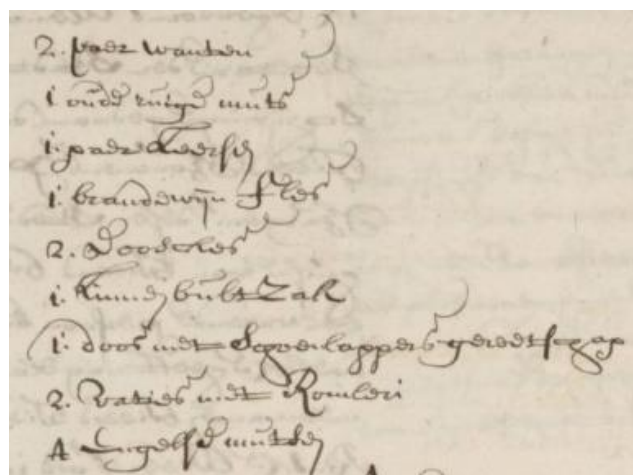 2. paer wanten
1. oude ruige muts
1. paer Leersen
1. brandewijn fles
2. Doosoles
1. Linnen bultzak
1. doos met Schoenlappers gereetschap
2. vaties met Romleri
4 Engelse mutsen